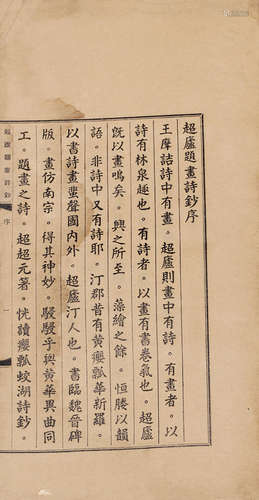 超廬題畫詩鈔序
王摩詰詩中有畫。超廬則畫中有詩。有畫者。以
詩有林泉趣也。有詩者。以畫有書卷氣也。超廬
既以畫鳴矣。興之所至。藻繪之餘。恒媵以韻
語。非詩中又有詩耶。汀郡昔有黃癭瓢華新羅。
以書詩畫蜚聲國內外。超廬汀人也。書臨魏晉碑
版。畫仿南宗。得其神妙。駸駸乎與黃華異曲同
工。題畫之詩。超超元著。恍讀癭瓢蛟湖詩鈔。
超廬題畫詩鈔 序 一